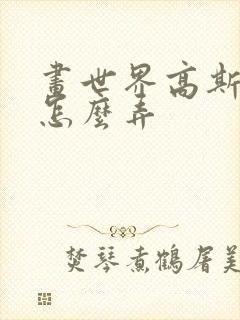 畫世界高斯
怎麼弄
焚琴煮鶴屠美